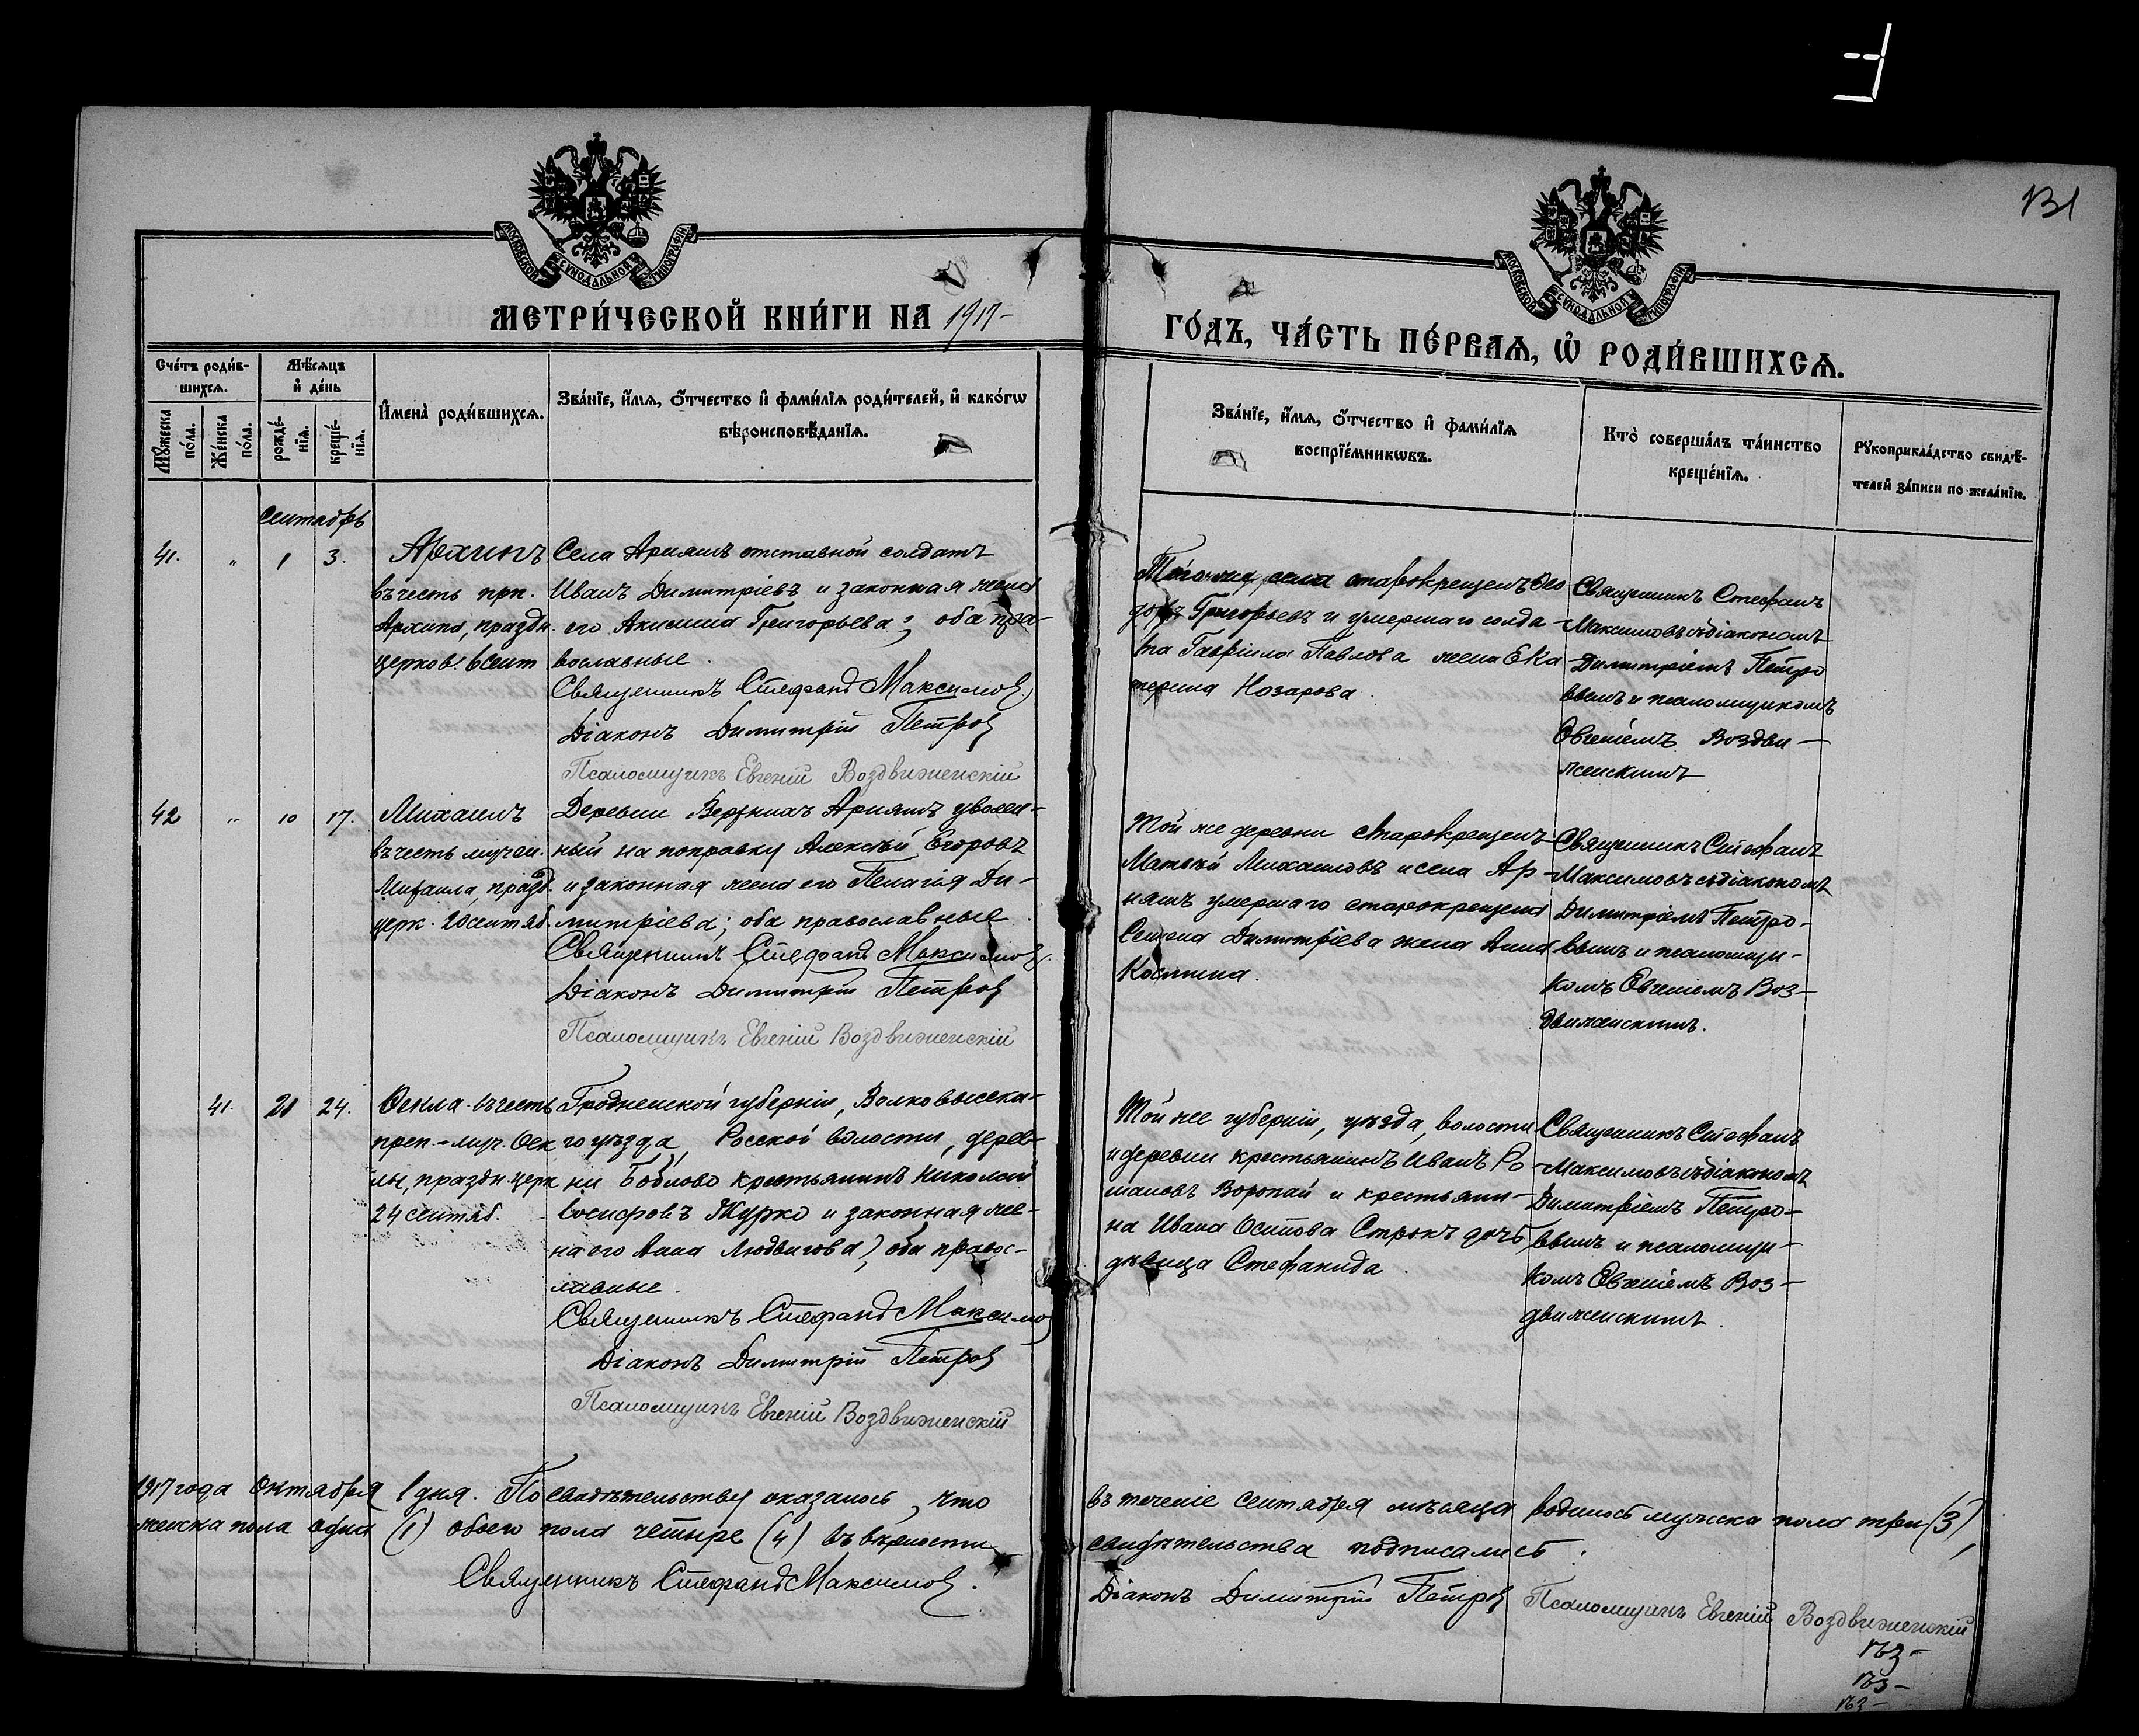 131
МОСКОВСКОЙ СѴНОДАЛЬНОЙ ТИПОГРАФІИ
МОСКОВСКОЙ СѴНОДАЛЬНОЙ ТИПОГРАФІИ
МЕТРИ́ЧЕСКОЙ КНИ́ГИ НА 1917
ГО́ДЪ, ЧА́СТЬ ПЕ́РВАѦ, Ѽ РОДИ́ВШИХСѦ.
Сче́тъ роди́в-
шихсѧ.
Мꙋжеска по́ла.
Же́нска по́ла.
Мѣ́сѧцъ
и҆ де́нь
рожде́-
нїѧ.
креще́-
нїѧ.
И҆мена̀ роди́вшихсѧ.
Зва́нїе, и҆́мѧ, ѻ҆́тчество и҆ фами́лїѧ роди́телей, и҆ како́гѡ
вѣроисповѣ́данїѧ.
Зва́нїе, и҆́мѧ, ѻ҆́тчество и҆ фами́лїѧ
воспрїе́мникѡвъ.
Кто̀ соверша́лъ та́инство
креще́нїѧ.
Рꙋкоприкла́дство свидѣ́-
телей за́писи по жела́нїю.
Сентябрь
41. " 1 3.
Архипъ
въ честь прп.
Архипа, праздн.
церков. 6 сент
Села Аріяшъ отставной солдатъ
Иванъ Димитріевъ и законная жена
его Акилина Григорьева; оба пра-
вославные.
Священникъ Стефанъ Максимов.
Діаконъ Димитрій Петров
Псаломщикъ Евгеній Воздвиженскій
Того же села старокрещенъ Ѳео
доръ Григорьевъ и умершаго солда-
та Гавріила Павлова жена Ека
терина Назарова.
Священникъ Стефанъ
Максимовъ съ діакономъ
Димитріемъ Петро
вымъ и псаломщикомъ
Евгеніемъ Воздви-
женскимъ
42 " 10 17.
Михаилъ
въ честь мучен.
Михаила, празд.
церк. 20 сентяб.
Деревни Верхнихъ Аріяшъ уволен-
ный на поправку Алексѣй Егоровъ
и законная жена его Пелагія Ди-
митріева; оба православные.
Священникъ Стефанъ Максимов.
Діаконъ Димитрій Петров
Псаломщикъ Евгеній Воздвиженскій
Той же деревни старокрещенъ
Матвѣй Михаиловъ и села Ар-
няшъ умершаго старокрещена
Семена Димитріева жена Анна
Космина.
Священникъ Стефанъ
Максимовъ съ діакономъ
Димитріемъ Петро-
вымъ и псаломщи-
комъ Евгеніемъ Воз-
движенскимъ.
41. 21 24.
Ѳекла въ честь
преп.-муч. Ѳек
лы, праздн. церк
24 сентяб.
Гродненской губерніи, Волковысска-
го уѣзда, Росской волости, дерев-
ни Боблово крестьянинъ Николай
Іосифовъ Журко и законная же-
на его Анна Людвигова; оба правос-
лавные.
Священникъ Стефанъ Максимов
Діаконъ Димитрій Петров
Псаломщикъ Евгеній Воздвиженскій
Той же губерніи, уѣзда, волости
и деревни крестьянинъ Иванъ Ро-
мановъ Воропай и крестьяни-
на Ивана Осипова Строкъ дочь
дѣвица Стефанида.
Священникъ Стефанъ
Максимовъ съ діакономъ
Димитріемъ Петро-
вымъ и псаломщи-
комъ Евгеніемъ Воз-
движенскимъ.
1917 года Октября 1 дня. По свидѣтельству оказалось, что
въ теченіе сентября мѣсяца родилось мужска пола три (3),
женска пола одна (1) обоего пола четыре (4) въ вѣрности
свидѣтельства подписались:
Священникъ Стефанъ Максимов.
Діаконъ Димитрій Петров Псаломщикъ Евгеній Воздвиженскій